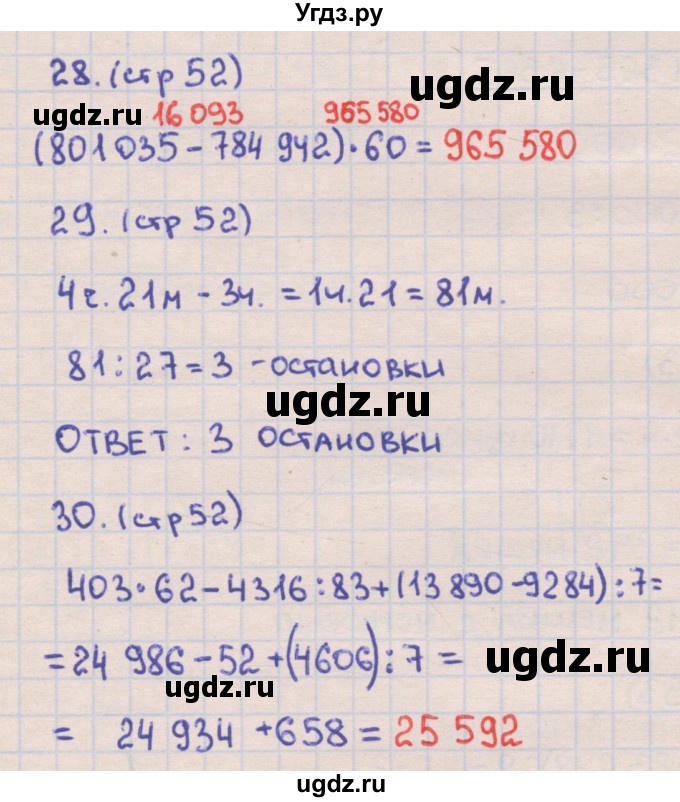 Угдз.ру
28. (стр 52)
ugdz.ru
ugdz.ru 16 093 965 580
(801 035 - 784 942) · 60 = 965 580
29. (стр 52)
4ч. 21м - 3ч. = 1ч. 21 = 81м.
81 : 27 = 3 - остановки
ugdz.ru
ОТВЕТ : 3 ОСТАНОВКИ
30. (стр 52)
403 · 62 - 4316 : 83 + (13 890 - 9284) : 7 =
= 24 986 - 52 + (4606) : 7 =
ugdz.ru
ugdz.ru
= 24 934 + 658 = 25 592
ugdz.ru